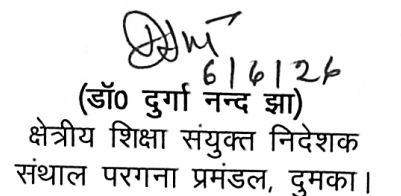 6/6/26
(डॉ0 दुर्गा नन्द झा)
क्षेत्रीय शिक्षा संयुक्त निदेशक
संथाल परगना प्रमंडल, दुमका।